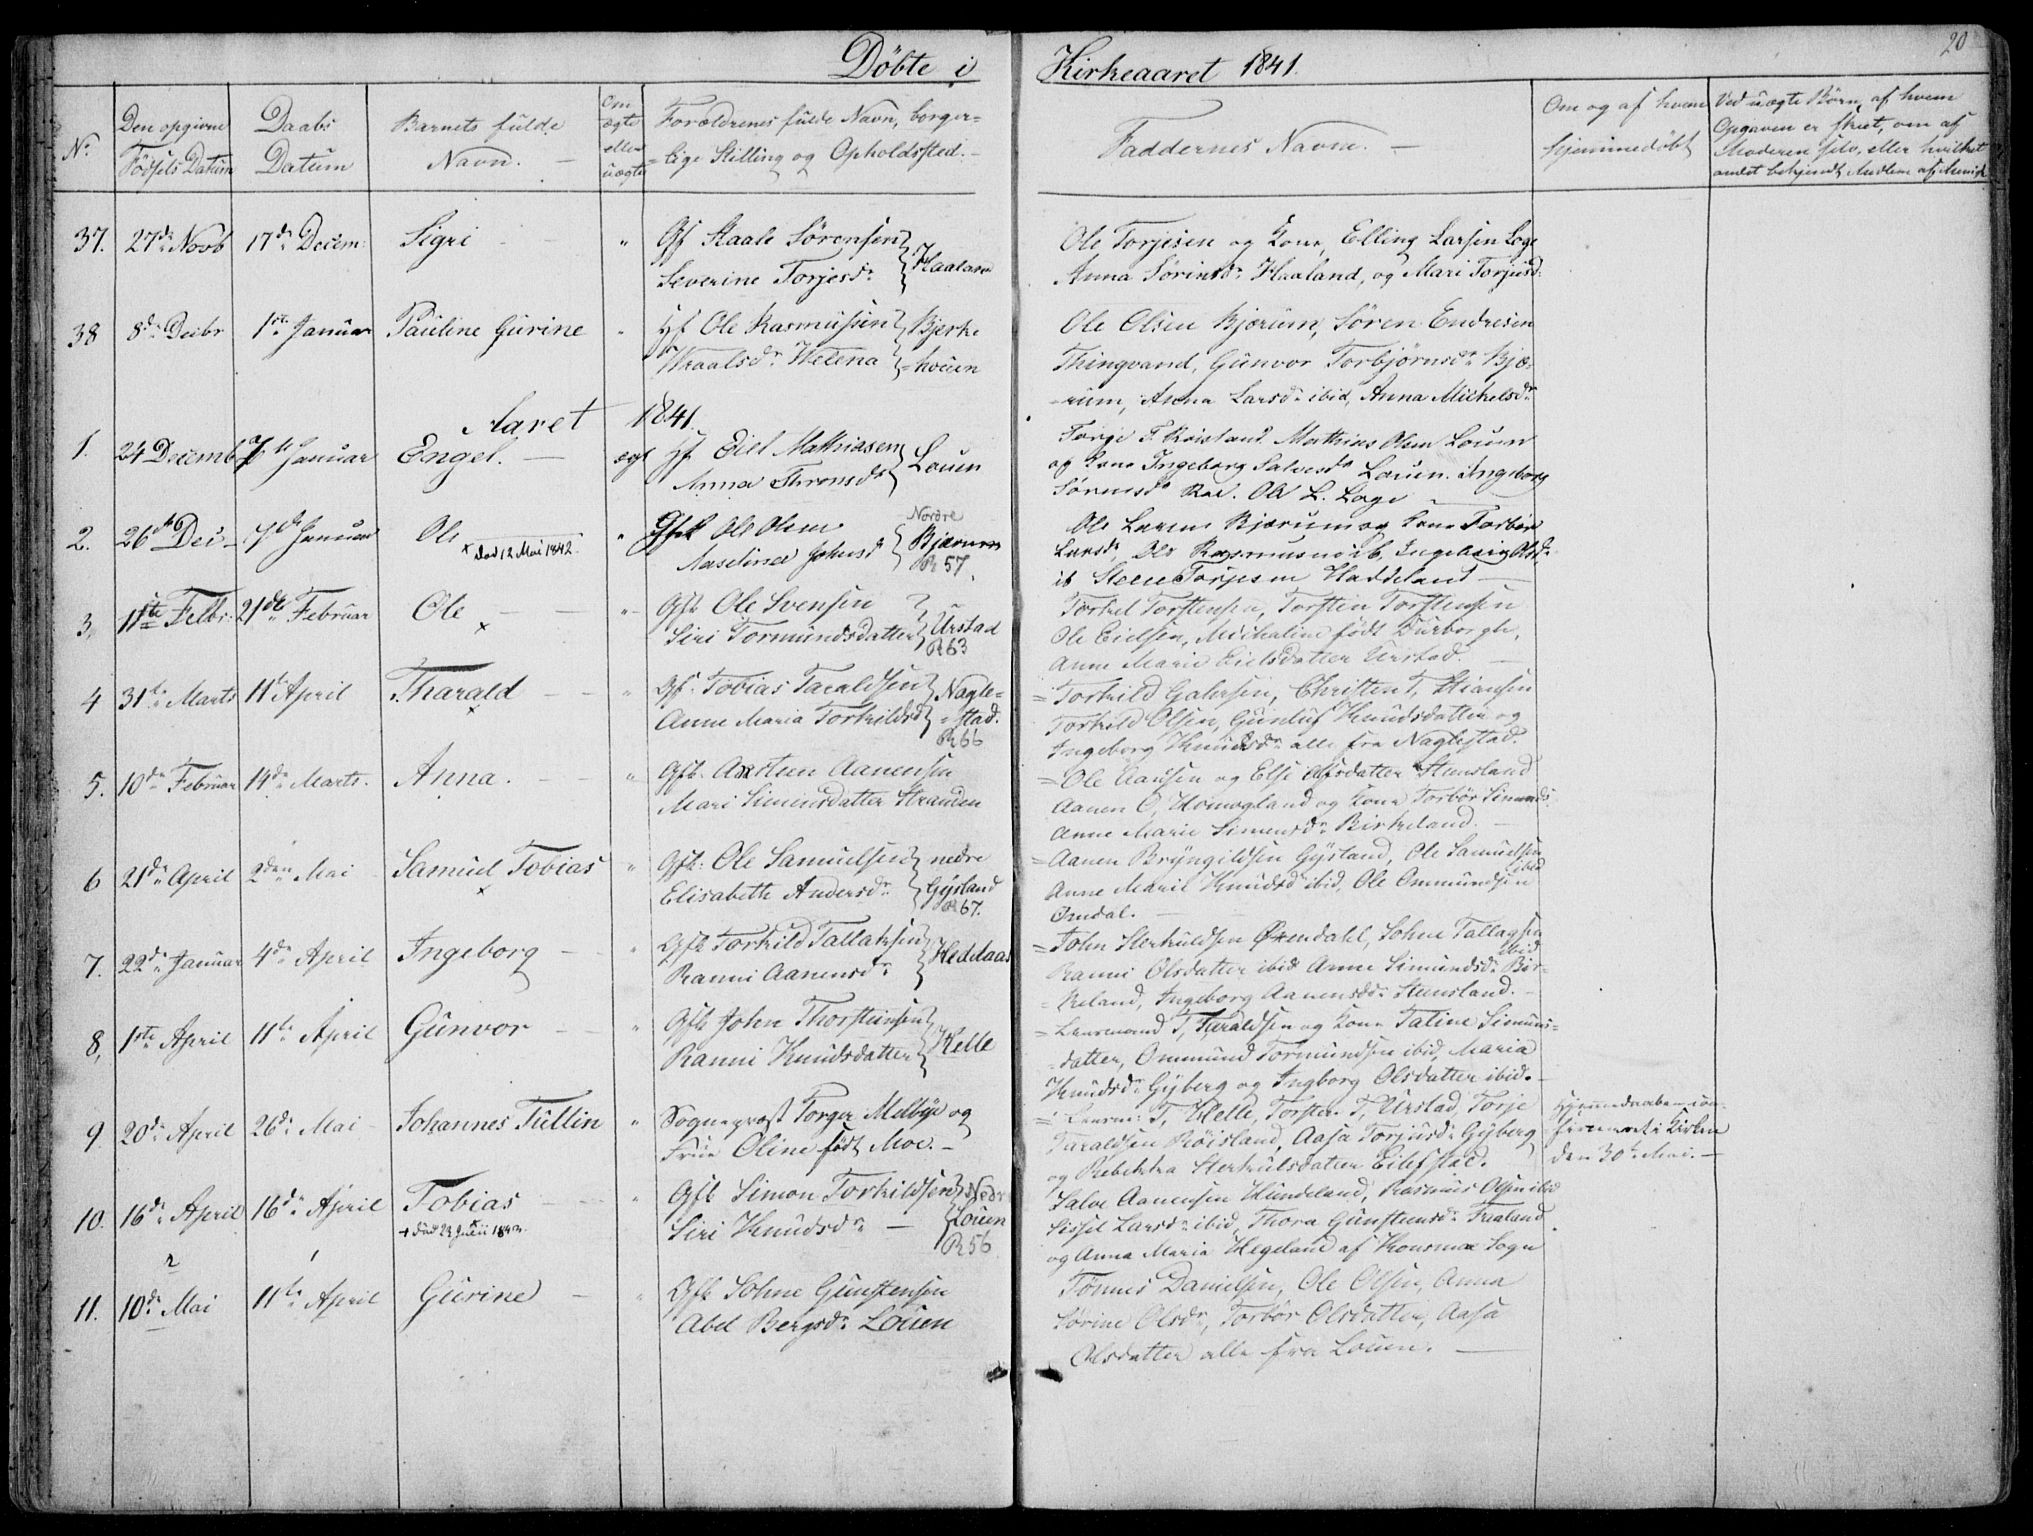 20
Döbte i Kirkeaaret 1841.
No
Den opgivne
Födsels Datum
Daabs
Datum
Barnets fulde
Navn. —
Om
ægte
eller
uægte
Forældrenes fulde Navn, borger=
=lige Stilling og Opholdssted. —
Faddernes Navne. —
Om og af hvem
hjemmedöbt
Ved uægte Börn, af hvem
Opgaven er skeet, om af
Moderen selv, eller hvilket
andet bekjendt Medlem af Menigh
37. 27de Novb 17de Decem: Sigri " Gf Staale Sörensen
Severine Torjesdr Haaland
Ole Torjesen og Kone, Elling Larsen Loge
Anna Sörensdr Haaland, og Mari Torjusd:
38 8de Decbr 1ste Januar Pauline Gurine " Hf Ole Rasmussen Bjerke
Wraalsdr Helena =houen
Ole Olsen Bjærum, Sören Endresen
Thingvand, Gunvor Torbjörnsdr Bjæ-
-rum, Anna Larsdr ibid, Anna Michelsdr
Aaret 1841.
1. 24 Decemb 7de Januar Engel. — ægt Hf Eiel Mathiasen
Anna Thronsdr Louen
Torge T. Röisland Mathias Olsen Louen
og Kone Ingeborg Salvesdr Louen. Ingeborg
Sörensdr Roe. Ole L. Loge —
2. 26de Dec — 7de Januar Ole " Gfk Ole Olsen Nordre
x död 12 Mai 1842. Aaseline Johnsd Bjærum
R 57.
Ole Larsen Bjærum og Kone Torbör
Larsdr Ole Rasmussen ib, Ingeborg Olsdr
ib Steen Torjesen Haddeland —
3, 11te Febr: 21de Februar Ole — — " Gfk Ole Svensen
x Siri Tormundsdatter Urstad
R 63
Torkel Torstensen, Torsten Torstensen
Ole Eielsen, Michaline födt Durborgh,
Anne Marie Eielsdatter Urstad. —
4 31te Marts 11te April Tharald — — " Gf. Tobias Taraldsen Nagle=
x Anne Maria Torkildsd =stad.
R 66
=Torkild Galvsen, Christen T, Stiansen
Torkild Olsen, Gunluf Knudsdatter og
Ingeborg Knudsdr alle fra Naglestad.
5. 10de Februar 14de Marts. Anna. — — " Gfk. Aasten Aanensen
Mari Simensdatter Stranden
=Ole Aansen og Else Olsdatter Stensland
Aanen O, Homogland og Kone Torbör Simends
Anne Marie Simensdr Birkeland. —
6 21de April 2den Mai Samuel Tobias " Gfk: Ole Samuelsen nedre
x Elisabeth Andersdr Gysland
R 67.
=Aanen Bryngildsen Gysland, Ole Samuelsen
ibid
Anne Maril Knudsd ibid, Ole Ommundsen
Omdal. —
7. 22de Januar 4de April Ingeborg — " Gfk Torkild Tallaksen
Ranni Aanensdr Hedelaas
=John Herkuldsen Örendahl, Sohne Tallagsen
ibid
Ranni Olsdatter ibid Anne Simundsdr Bir-
=keland, Ingeborg Aanensdr Stensland. —
8, 1ste April 11te April Gunvor — — " Gfk John Thorsteinsen
Ranni Knudsdatter Helle
=Lensmand T, Taraldsen og Kone Taline Simuns=
=datter, Ommund Tormundsen ibid, Maria
Knudsdr Gyberg og Ingborg Olsdatter ibid. —
9. 20de April 26de Mai — Johannes Tullin " Sognepræst Torger Melbye og
Frue Oline födt Moe. —
= Lensm: T, Helle, Torsten T, Urstad, Torje
Taraldsen Röisland, Aasa Torjusdr Gyberg
og Rebekka Herkulsdatter Eilefstad.
Hjemmedaaben con-
firmeret i Kirken
den 30te Mai. —
10. 16de April 16de April Tobias — — " Gfk Simon Torkildsen Nedr
+ död 23 Juni 1843. Siri Knudsdr — Louen
R 56
Salve Aanensen Hundeland, Rasmus Olsen ibid
Sissel Larsdr ibid, Thora Gunstensdr Fraland
og Anna Maria Hegeland af Konsmoe Sogn
11. 10de Mai 11te April Gurine — " Gfk Sohne Gunstensen
Abel Bergsdr Louen
Tönnes Danielsen, Ole Olsen, Anna
Sörine Olsdr, Torbör Olsdatter, Aasa
Olsdatter alle fra Louen. —